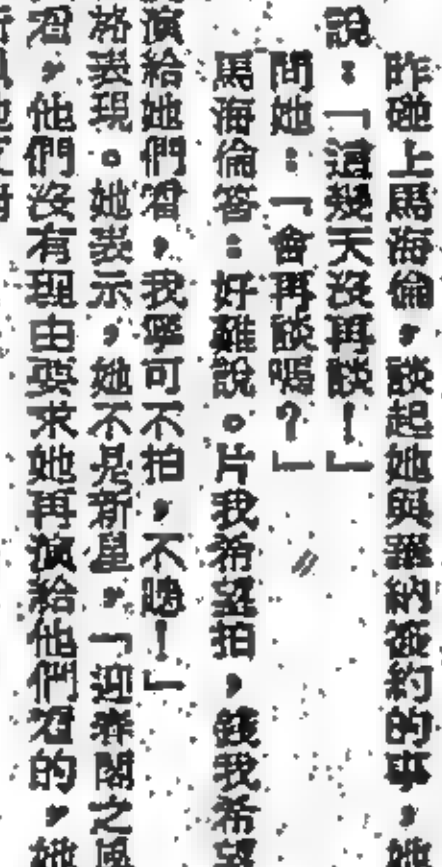 昨碰上馬海倫，談起她與羅納簽約的事，她
說：「這幾天沒再談！」
問她：「會再談嗎？」
馬海倫答：好難說。片我希望拍，錢我希望
演給她們看，我寧可不拍，不賺！」
表現。她表示，她不是新星，「迎春閣之風
看，他們沒有理由要求她再演給他們看的，她